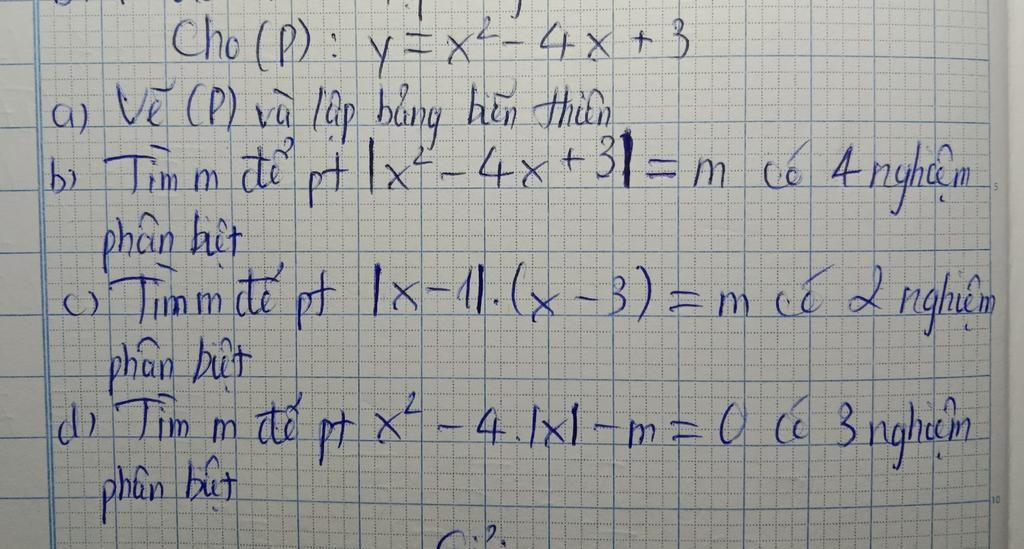 Cho (P) : y = x² - 4x + 3
a) Vẽ (P) và lập bảng biến thiên
b) Tìm m để pt |x² - 4x + 3| = m có 4 nghiệm
phân biệt
c) Tìm m để pt |x - 1|.(x - 3) = m có 2 nghiệm
phân biệt
d) Tìm m để pt x² - 4.|x| - m = 0 có 3 nghiệm
phân biệt
5
10